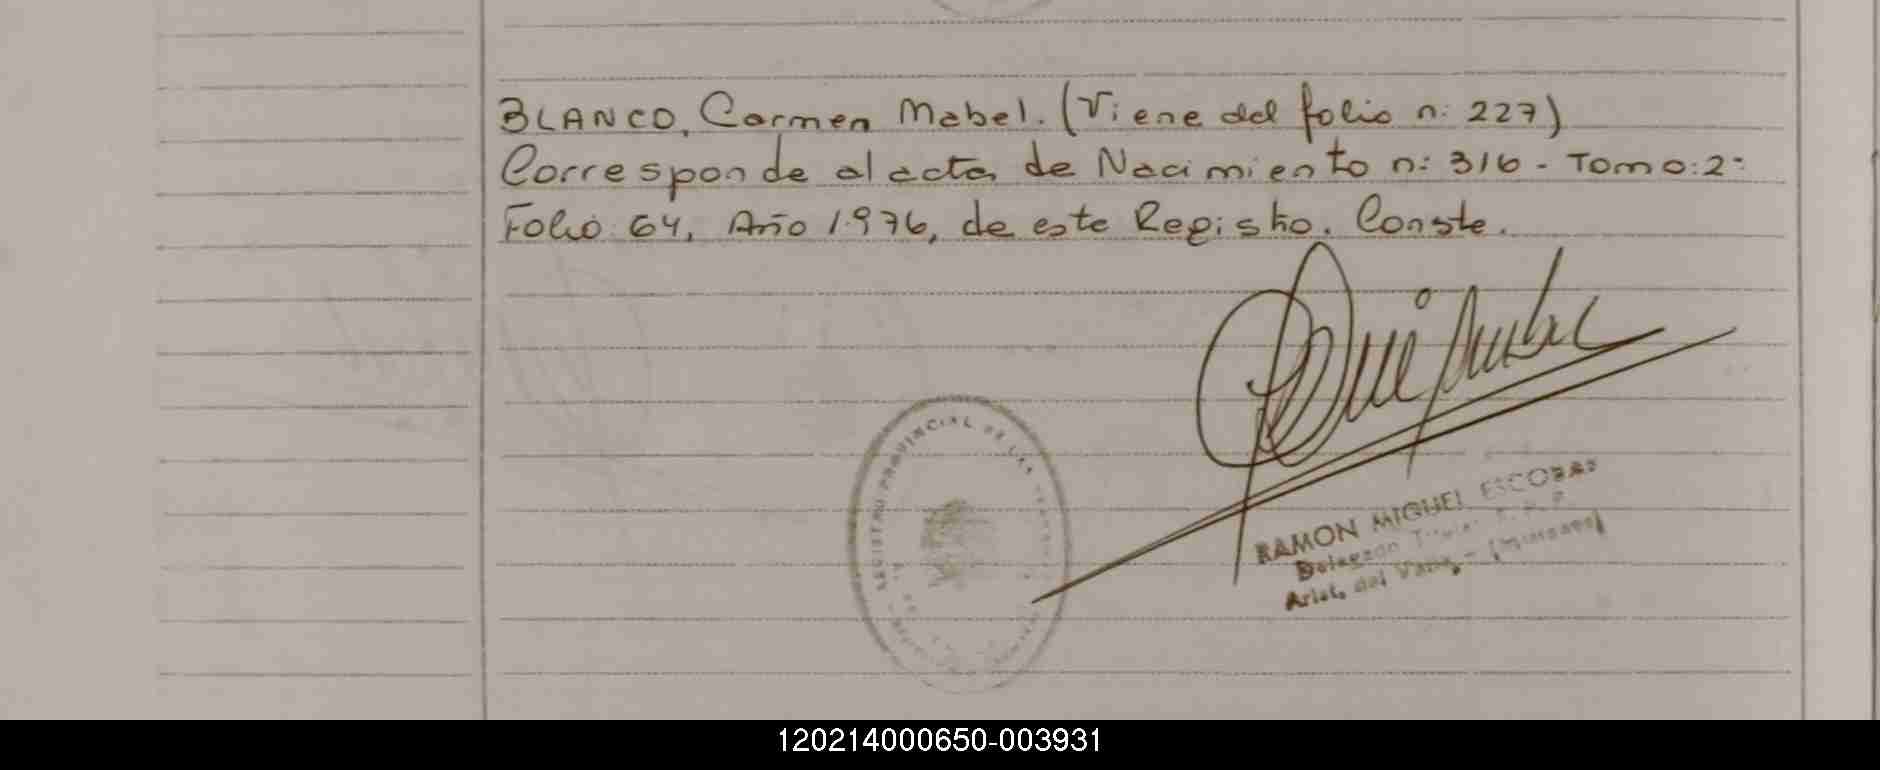 BLANCO, Carmen Mabel. (Viene del folio n: 227)
Corresponde al acta de Nacimiento n: 316 - Tomo: 2º
Folio: 64, Año 1.976, de este Registro. Conste.
REGISTRO PROVINCIAL DE LAS
RAMON MIGUEL ESCOBAR
Delegado
Arist. del Valle - (Misiones)
120214000650-003931